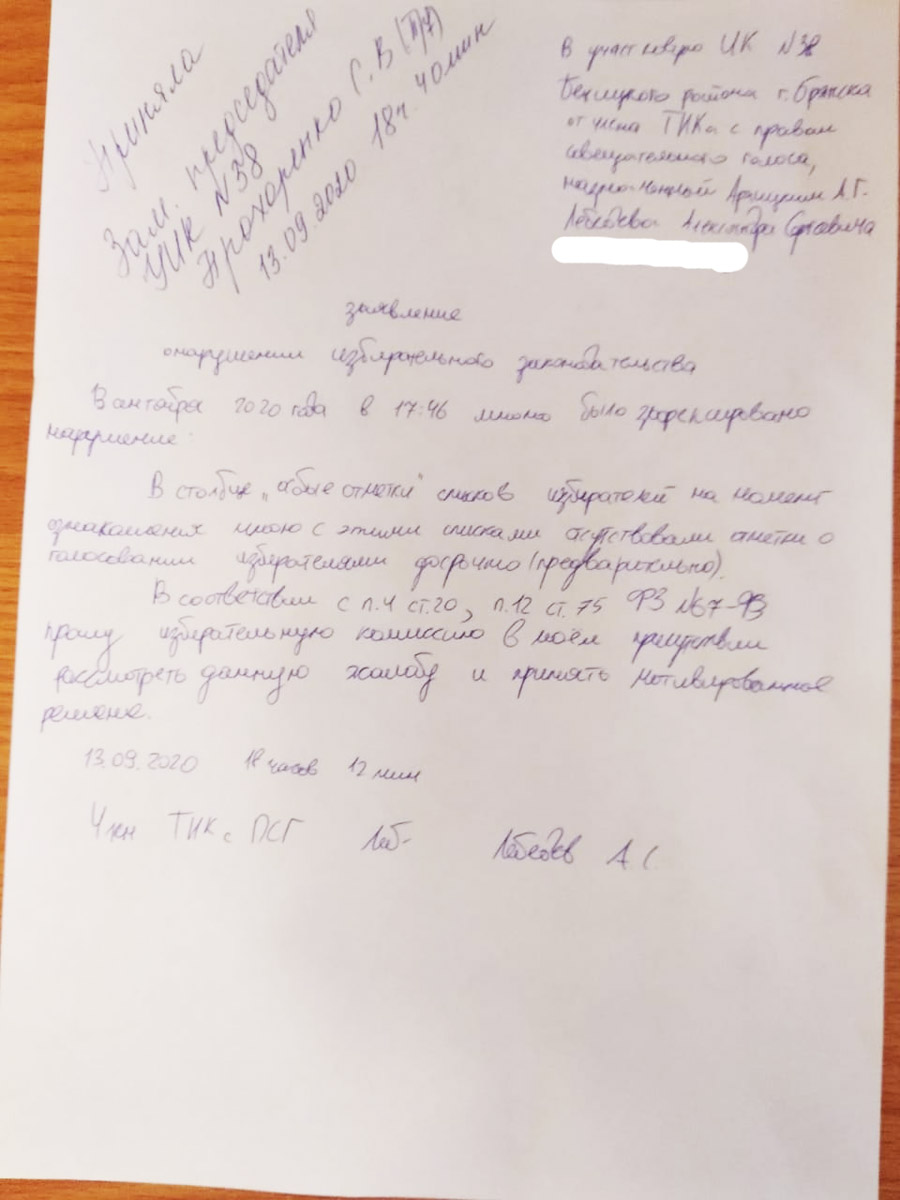 Приняла
Зам. председателя
УИК N38
Прохоренко С.В (П/7)
13.09.2020 18ч 40мин
В участковую ИК N38
Бежицкого района г. Брянска
от члена ТИКа с правом
совещательного голоса,
Арницким А.Г.
Лебедева Александра Сергеевича
заявление
онарушении избирательного законодательства
В 2020 года в 17:46 мною было зафиксировано
нарушение:
В столбце „особые отметки" списков избирателей на момент
ознакомления мною с этими списками отсутствовали отметки о
голосовании избирателями досрочно (предварительно).
В соответствии с п.4 ст.20, п.12 ст.75 ФЗ №67-ФЗ
прошу избирательную комиссию в моём присутствии
рассмотреть данную жалобу и принять мотивированное
решение.
13.09.2020 18 часов 12 мин
Член ТИК с ПСГ Леб- Лебедев А С